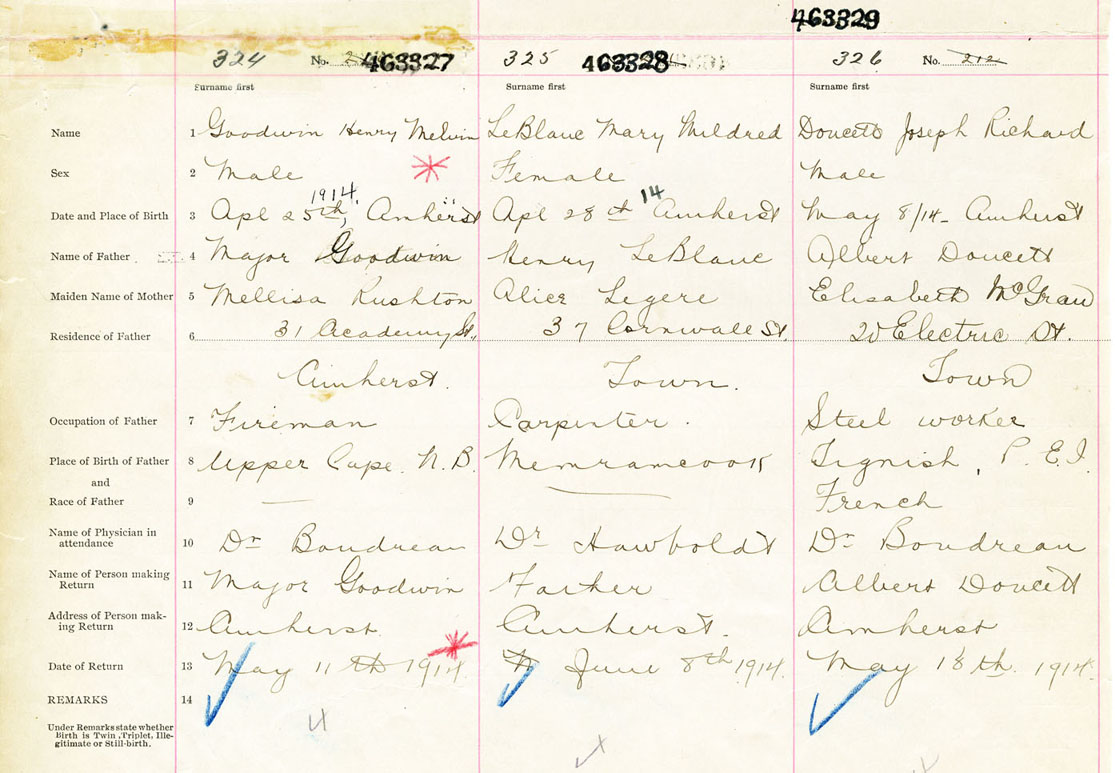 463329
324 No. 463327 325 463328 326 No. 212
Surname first Surname first Surname first
Name 1 Goodwin Henry Melvin LeBlanc Mary Mildred Doucett Joseph Richard
Sex 2 Male Female Male
1914. 14
Date and Place of Birth 3 Apl 25th, Amherst Apl 28th Amherst May 8/14 - Amherst
Name of Father 4 Major Goodwin Henry LeBlanc Albert Doucett
Maiden Name of Mother 5 Mellisa Rushton Alice Legere Elisabeth McGraw
Residence of Father 6 31 Academy St., 37 Cornwall St. 20 Electric St.
Amherst. Town. Town
Occupation of Father 7 Fireman Carpenter. Steel worker
Place of Birth of Father 8 Upper Cape N.B. Memramcook Tignish, P.E.I.
and
Race of Father 9 — — French
Name of Physician in
attendance 10 Dr Boudreau Dr. Hawboldt Dr Boudreau
Name of Person making
Return 11 Major Goodwin Father Albert Doucett
Address of Person mak-
ing Return 12 Amherst. Amherst. Amherst
Date of Return 13 May 11th 1914. June 8th 1914. May 18th. 1914.
REMARKS 14
Under Remarks state whether
Birth is Twin, Triplet, Ille-
gitimate or Still-birth.